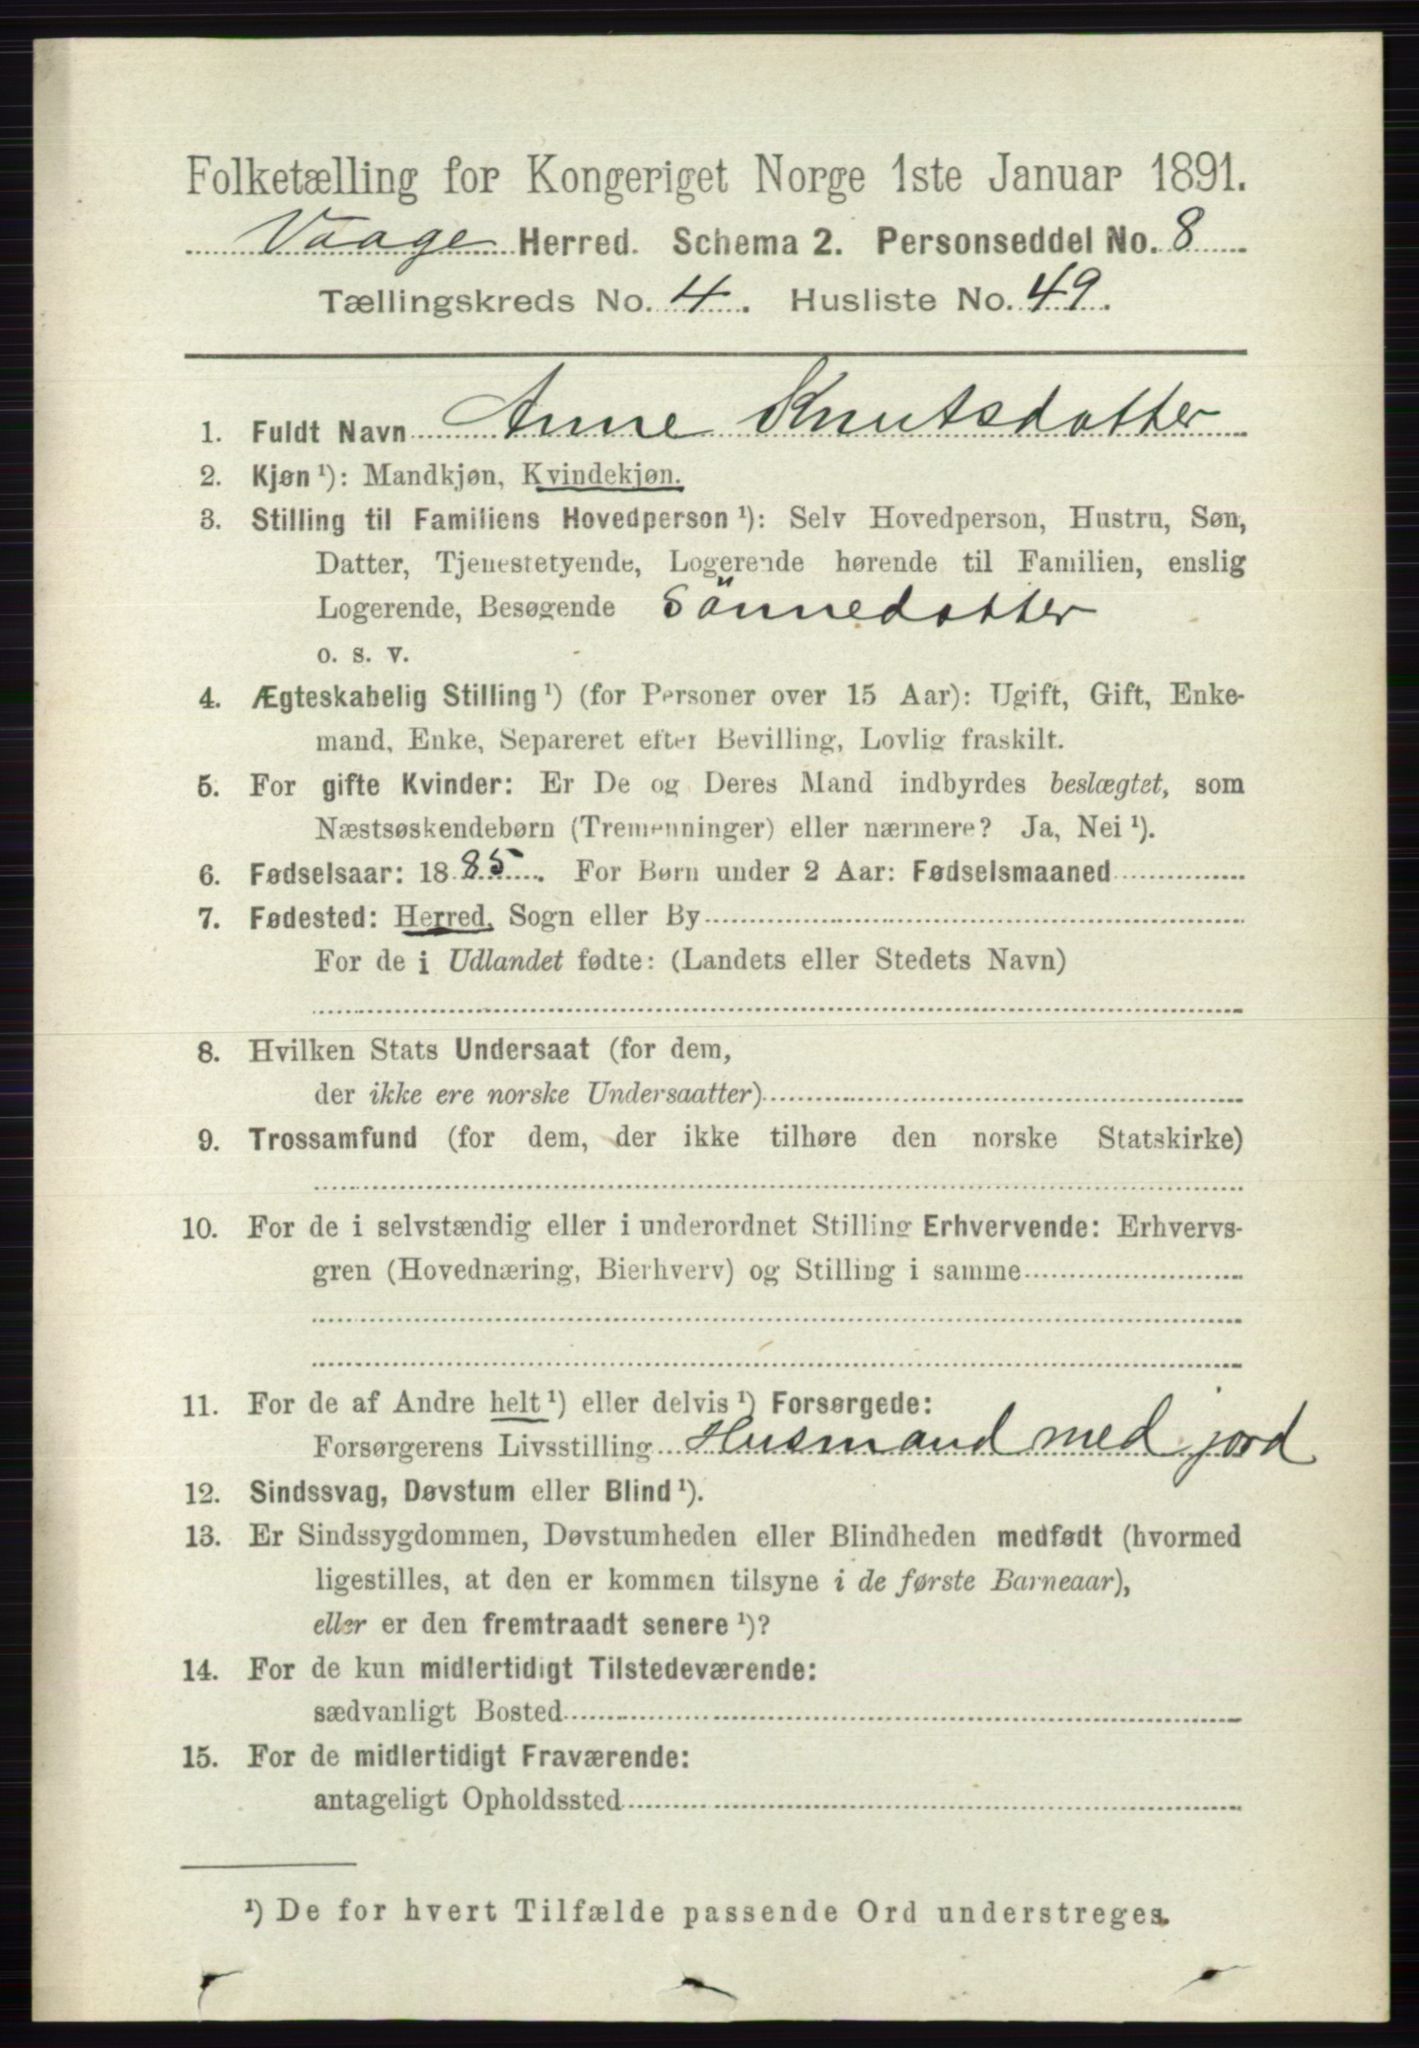 Folketælling for Kongeriget Norge 1ste Januar 1891.
Vaage Herred. Schema 2. Personseddel No. 8
Tællingskreds No. 4. Husliste No. 49.
1. Fuldt Navn Anne Knutsdatter
2. Kjøn ¹): Mandkjøn, Kvindekjøn.
3. Stilling til Familiens Hovedperson ¹): Selv Hovedperson, Hustru, Søn,
Datter, Tjenestetyende, Logerende hørende til Familien, enslig
Logerende, Besøgende Sönnedatter
o. s. v.
4. Ægteskabelig Stilling ¹) (for Personer over 15 Aar): Ugift, Gift, Enke-
mand, Enke, Separeret efter Bevilling, Lovlig fraskilt.
5. For gifte Kvinder: Er De og Deres Mand indbyrdes beslægtet, som
Næstsøskendebørn (Tremenninger) eller nærmere? Ja, Nei ¹).
6. Fødselsaar: 1885. For Børn under 2 Aar: Fødselsmaaned
7. Fødested: Herred, Sogn eller By
For de i Udlandet fødte: (Landets eller Stedets Navn)
8. Hvilken Stats Undersaat (for dem,
der ikke ere norske Undersaatter)
9. Trossamfund (for dem, der ikke tilhøre den norske Statskirke)
10. For de i selvstændig eller i underordnet Stilling Erhvervende: Erhvervs-
gren (Hovednæring, Bierhverv) og Stilling i samme
11. For de af Andre helt ¹) eller delvis ¹) Forsørgede:
Forsørgerens Livsstilling Husmand med jord
12. Sindssvag, Døvstum eller Blind ¹).
13. Er Sindssygdommen, Døvstumheden eller Blindheden medfødt (hvormed
ligestilles, at den er kommen tilsyne i de første Barneaar),
eller er den fremtraadt senere ¹)?
14. For de kun midlertidigt Tilstedeværende:
sædvanligt Bosted
15. For de midlertidigt Fraværende:
antageligt Opholdssted
¹) De for hvert Tilfælde passende Ord understreges.